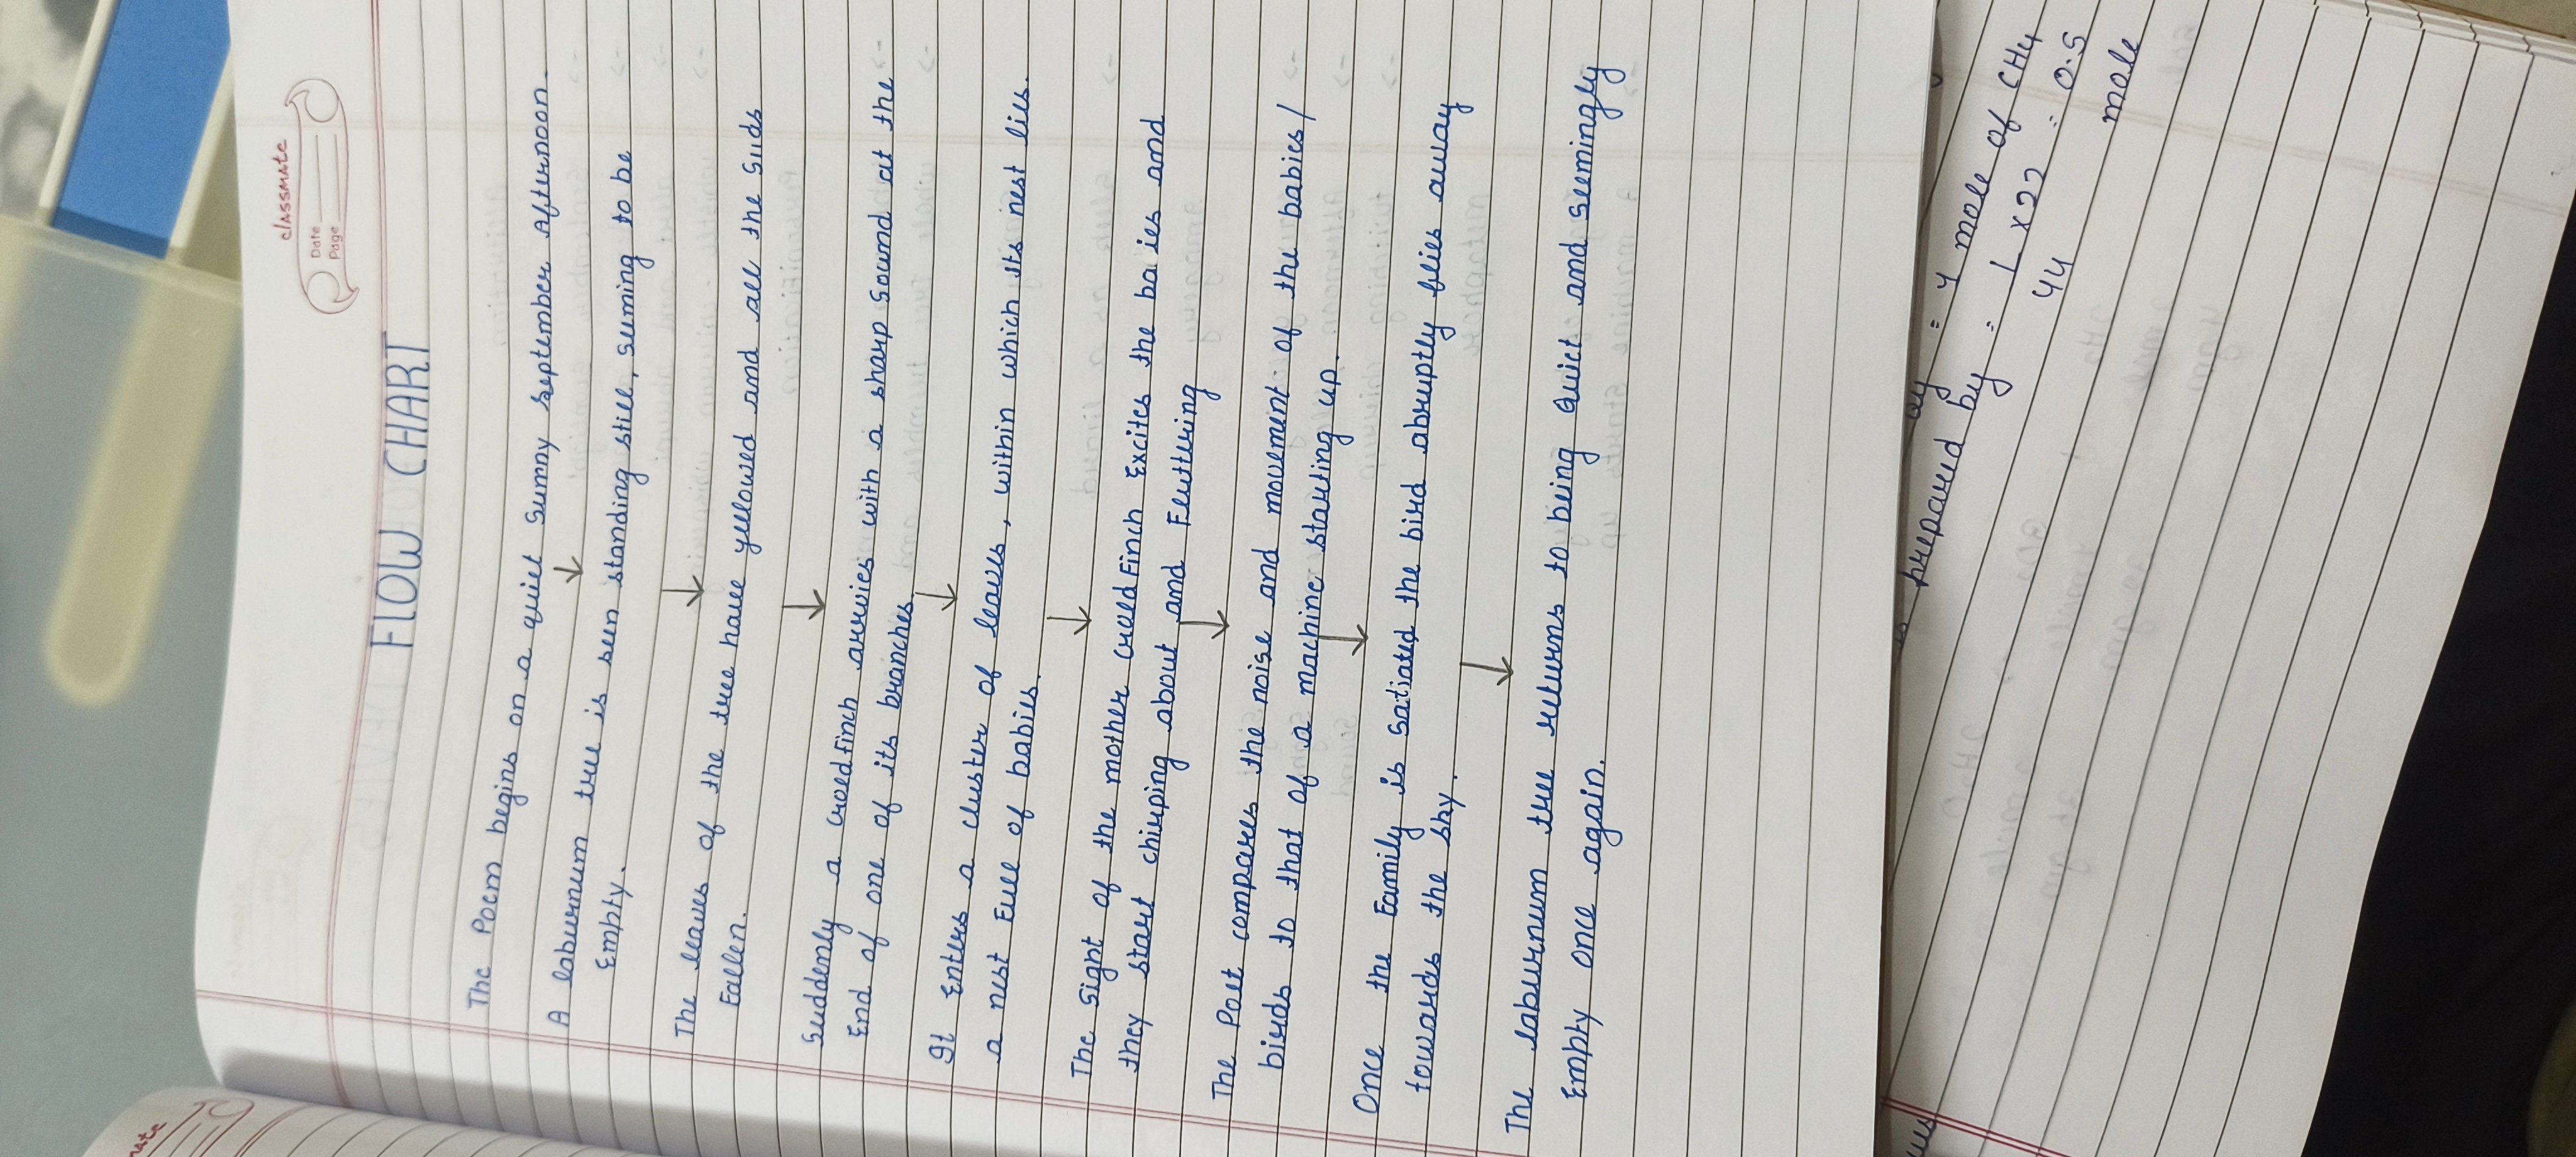 classmate
Date
Page
FLOW CHART
The Poem begins on a quiet sunny september Afternoon.
↓
A laburnum tree is seen standing still, seeming to be
Empty.
↓
The leaves of the tree have yellowed and all the suds
Fallen.
↓
Suddenly a GoldFinch arrvies with a sharp sound at the
End of one of its branches.
↓
It Enters a cluster of leaves, within which its nest lies.
a nest Full of babies.
↓
The sight of the mother GoldFinch Excites the ba ies and
they start chirping about and Fluttering
↓
The Poet compares the noise and movement of the babies /
birds to that of a machine starting up.
↓
Once the Family is satiated the bird abruptly flies away
towards the sky.
↓
The laburnum tree returns to being quiet and seemingly
Empty once again.
= 4 mole of CH4
prepared by = 1 x 22 = 0.5
44 mole